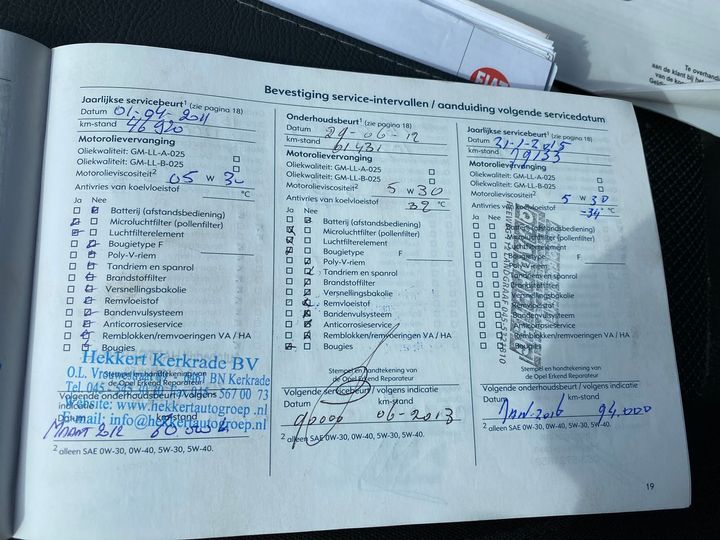 FIAT
Te overhandi
aan de klant bij het
van de ko
Geldi
Bevestiging service-intervallen / aanduiding volgende servicedatum
Jaarlijkse servicebeurt¹ (zie pagina 18)
Datum 01-04-2011
km-stand 46 920
Motorolievervanging
Oliekwaliteit: GM-LL-A-025
Oliekwaliteit: GM-LL-B-025
Motorolieviscositeit² 05 W 30
Antivries van koelvloeistof °C
Ja Nee
Batterij (afstandsbediening)
Microluchtfilter (pollenfilter)
Luchtfilterelement
Bougietype F
Poly-V-riem
Tandriem en spanrol
Brandstoffilter
Versnellingsbakolie
Remvloeistof
Bandenvulsysteem
Anticorrosieservice
Remblokken/remvoeringen VA / HA
Bougies
Hekkert Kerkrade BV
Stempel en handtekening van
de Opel Erkend Reparateur
O.L. Vrouwestraat BN Kerkrade
Tel. 045 567 00 73
Volgende onderhoudsbeurt / volgens
indicatie
Website: www.hekkertautogroep.nl
Datum km-stand
email: info@hekkertautogroep.nl
Maart 2012 60 000
² alleen SAE 0W-30, 0W-40, 5W-30, 5W-40.
Onderhoudsbeurt¹ (zie pagina 18)
Datum 29-06-12
km-stand 61431
Motorolievervanging
Oliekwaliteit: GM-LL-A-025
Oliekwaliteit: GM-LL-B-025
Motorolieviscositeit² 5 W 30
Antivries van koelvloeistof 32 °C
Ja Nee
Batterij (afstandsbediening)
Microluchtfilter (pollenfilter)
Luchtfilterelement
Bougietype F
Poly-V-riem
Tandriem en spanrol
Brandstoffilter
Versnellingsbakolie
Remvloeistof
Bandenvulsysteem
Anticorrosieservice
Remblokken/remvoeringen VA / HA
Bougies
Stempel en handtekening van
de Opel Erkend Reparateur
Volgende servicebeurt / volgens indicatie
Datum km-stand
90000 06-2013
² alleen SAE 0W-30, 0W-40, 5W-30, 5W-40.
Jaarlijkse servicebeurt¹ (zie pagina 18)
Datum 21-1-2015
km-stand 79133
Motorolievervanging
Oliekwaliteit: GM-LL-A-025
Oliekwaliteit: GM-LL-B-025
Motorolieviscositeit² 5 W 30
Antivries van koelvloeistof -34 °C
Ja Nee
Batterij (afstandsbediening)
Microluchtfilter (pollenfilter)
Luchtfilterelement
Bougietype F
Poly-V-riem
Tandriem en spanrol
Brandstoffilter
Versnellingsbakolie
Remvloeistof
Bandenvulsysteem
Anticorrosieservice
Remblokken/remvoeringen VA / HA
Bougies
Stempel en handtekening van
de Opel Erkend Reparateur
Volgende onderhoudsbeurt / volgens indicatie
Datum km-stand
Jan-2016 94.000
² alleen SAE 0W-30, 0W-40, 5W-30, 5W-40.
19